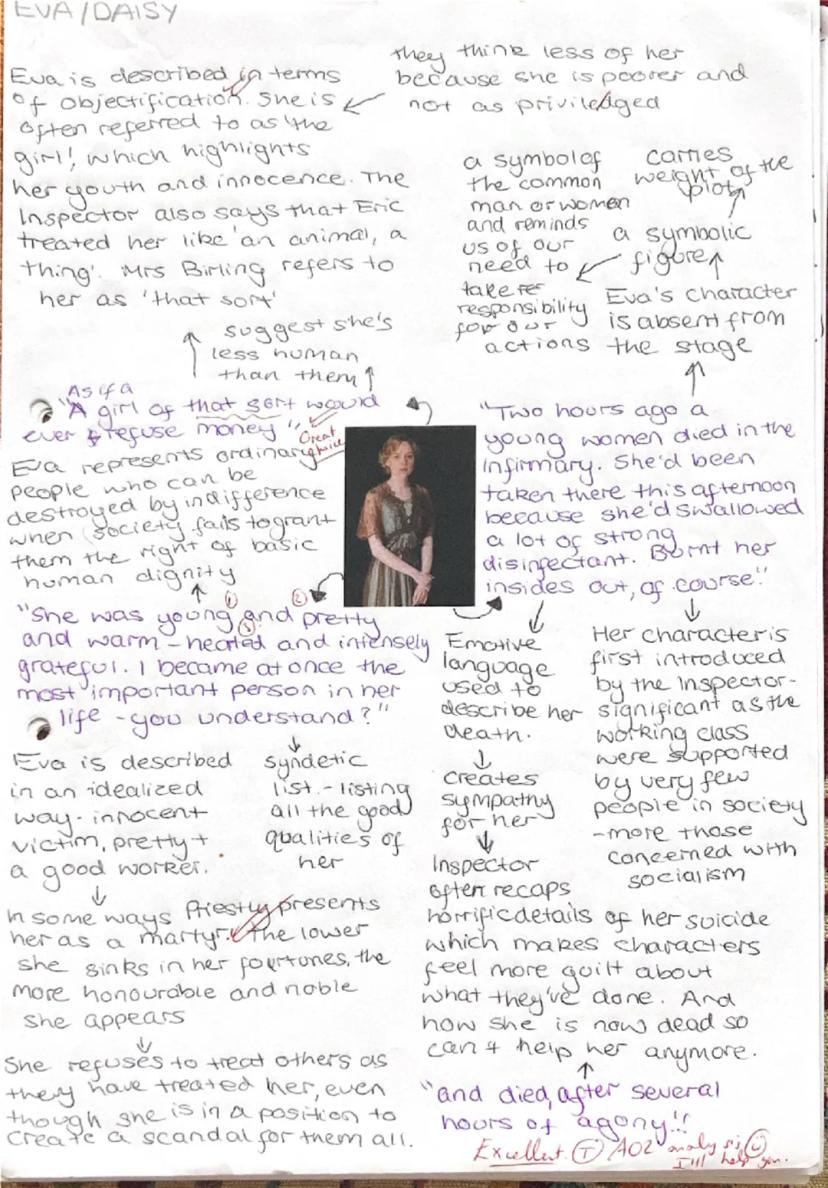 EVA/DAISY
Eva is described in terms
of objectification. She is
often referred to as 'the
girl', which highlights
her youth and innocence. The
Inspector also says that Eric
treated her like 'an animal, a
thing'. Mrs Birling refers to
her as 'that sort'
they think less of her
because she is poorer and
not as priviledged
a symbol of
the common
man or women
and reminds
us of our
need to
take re
responsibility
for our
actions
carries
weight of the
plot
a symbolic
figure
Eva's character
is absent from
the stage
suggest she's
less human
than them
As if a
"A girl of that sort would
ever refuse money"
Great
Eva represents ordinary
people who can be
destroyed by indifference
when society fails to grant
them the right of basic
human dignity
"Two hours ago a
young women died in the
infirmary. She'd been
taken there this afternoon
because she'd swallowed
a lot of strong
disinfectant. Burnt her
insides out, of course."
① ②
③
"She was young and pretty
and warm-hearted and intensely
grateful. I became at once the
most important person in her
life - you understand?"
Eva is described
in an idealized
way - innocent
victim, pretty +
a good worker.
syndetic
list - listing
all the good
qualities of
her
In some ways Priestly presents
her as a martyr. The lower
she sinks in her fourtunes, the
more honourable and noble
she appears
She refuses to treat others as
they have treated her, even
though she is in a position to
create a scandal for them all.
Emotive
language
used to
describe her
death.
creates
sympathy
for her
Inspector
often recaps
horrific details of her suicide
which makes characters
feel more guilt about
what they've done. And
how she is now dead so
can't help her anymore.
Her character is
first introduced
by the Inspector -
significant as the
working class
were supported
by very few
people in society
- more those
concerned with
socialism
"and died, after several
hours of agony"!
Excellent. Ⓣ AO2 analysis
I'll help you.